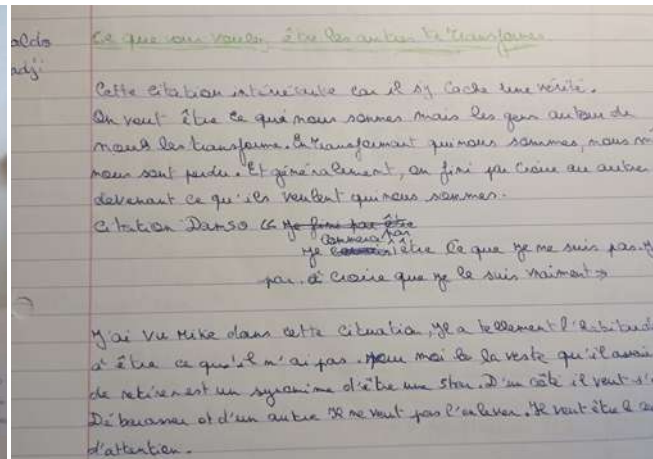 aldo
adji
Ce que vous voulez être les autres le transforme
Cette citation car il s'y cache une vérité.
On veut être ce que nous sommes mais les gens autour de
nous les transforme. En transformant qui nous sommes, nous
nous sont perdu. Et généralement, on fini par croire au autre
devenant ce qu'ils veulent qui nous sommes.
Citation Damso « je fini par être
commence par
je être ce que je ne suis pas.
par à croire que je le suis vraiment »
J'ai vu Mike dans cette cituation, Il a tellement l'
d'être ce qu'il n'ai pas. Pour moi la veste qu'il
de retirer est un synonime d'être une star. D'un côté il veut s'
Dé d'un autre Il ne veut pas l'enlever. Il veut être le
d'attention.